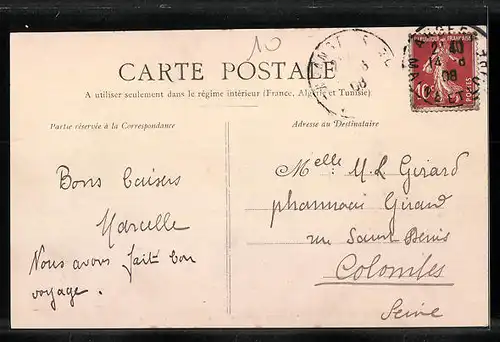 10
CARTE POSTALE
A utiliser seulement dans le régime intérieur (France, Algérie et Tunisie)
Partie réservée à la Correspondance
Adresse au Destinataire
Bons baisers
Marcelle
Nous avons fait bon
voyage.
Melle M. L. Girard
pharmacie Girard
rue Saint Denis
Colombes
Seine
08
2 40
08
10
POSTES